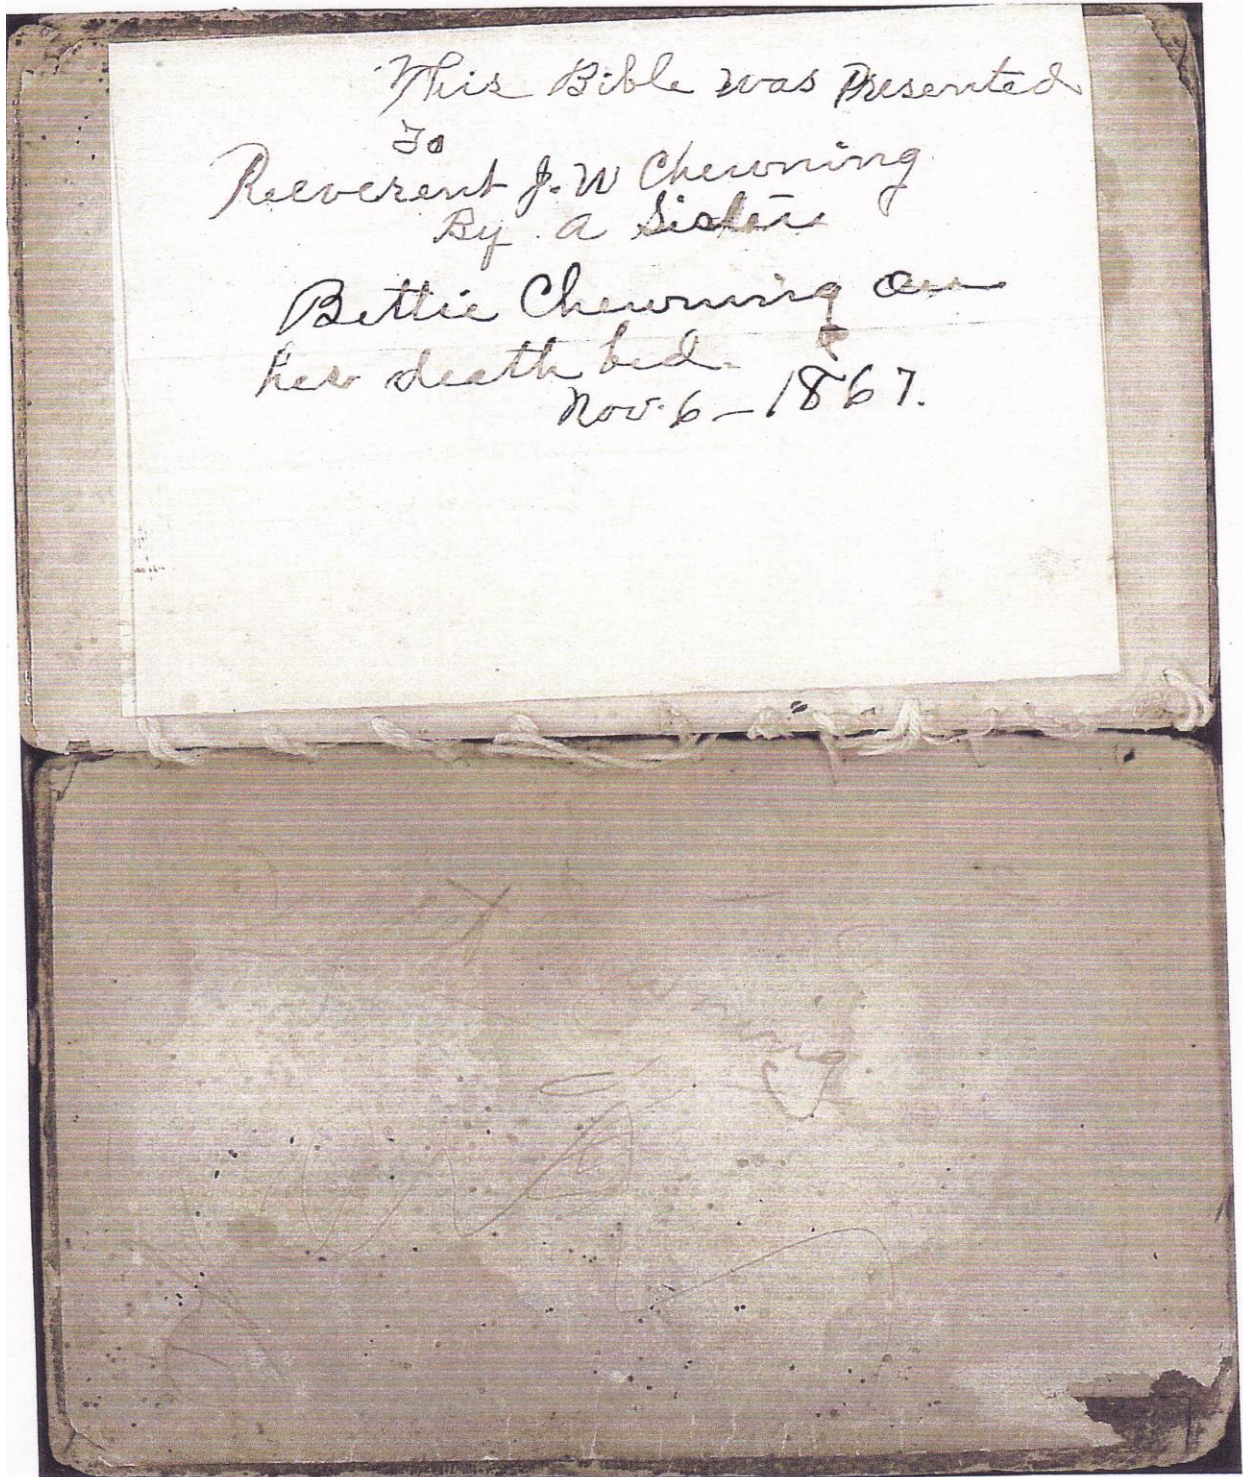 This Bible was Presented
To
Reeverent J. W Chewning
By a Sister
Bettie Chewning on
her death bed.
Nov. 6 – 1867.